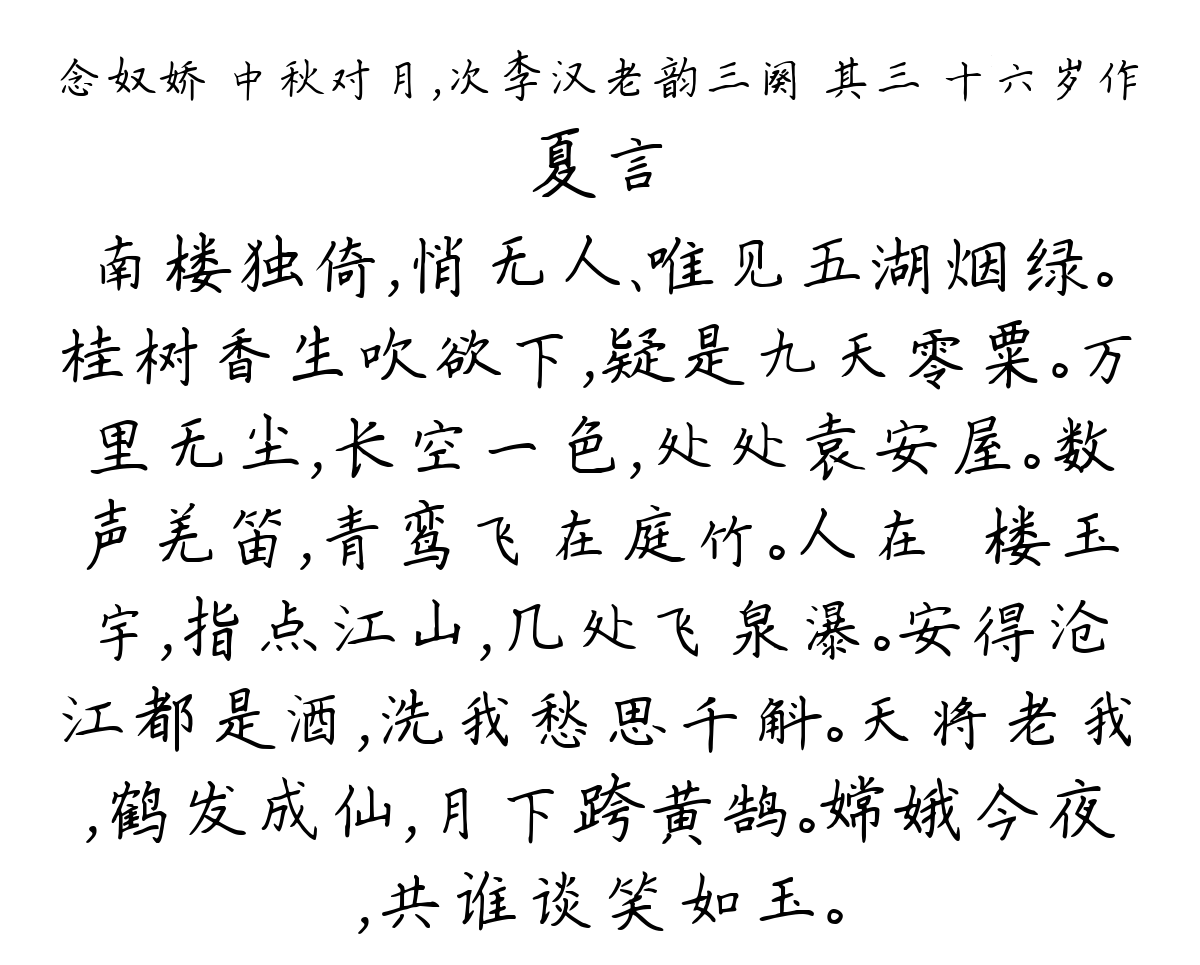 念奴娇 中秋对月,次李汉老韵三阕 其三 十六岁作
夏言
南楼独倚,悄无人、唯见五湖烟绿。
桂树香生吹欲下,疑是九天零粟。万
里无尘,长空一色,处处袁安屋。数
声羌笛,青鸾飞在庭竹。人在 楼玉
宇,指点江山,几处飞泉瀑。安得沧
江都是酒,洗我愁思千斛。天将老我
,鹤发成仙,月下跨黄鹄。嫦娥今夜
,共谁谈笑如玉。